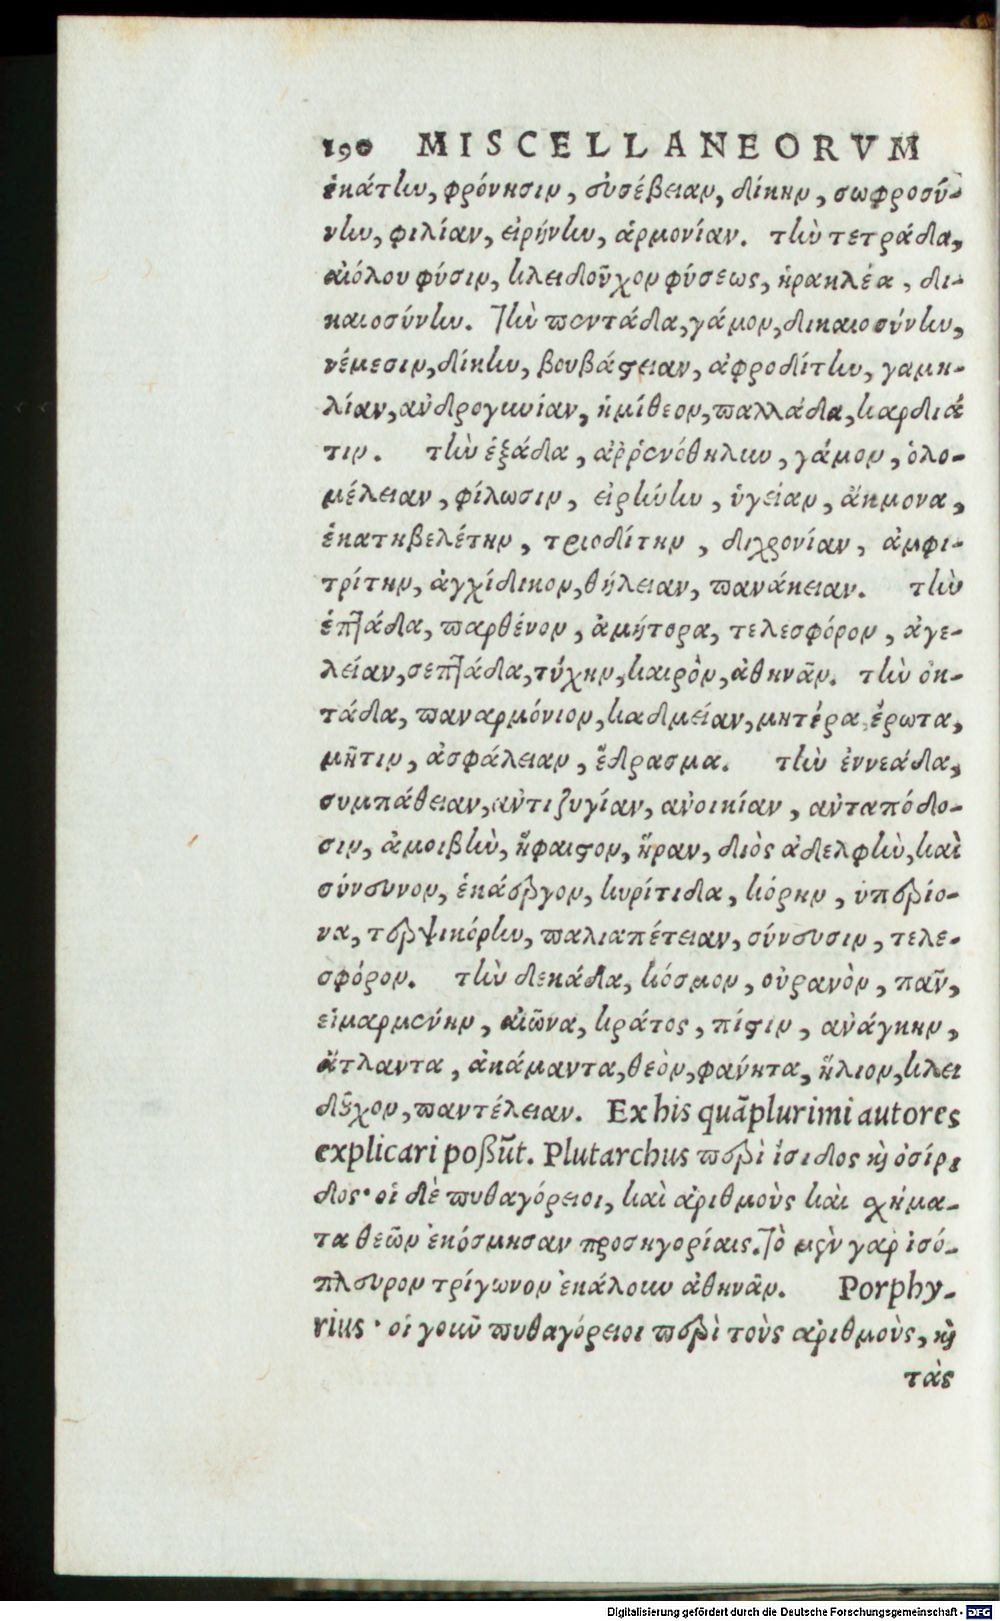 190 MISCELLANEORVM
ἑκάτην, φρόνησιν, εὐσέβειαν, δίκην, σωφροσύ-
νην, φιλίαν, εἰρήνην, ἁρμονίαν. τὴν τετράδα,
αἰόλου φύσιν, κλειδοῦχον φύσεως, ἡρακλέα, δι-
καιοσύνην. τὴν πεντάδα, γάμον, δικαιοσύνην,
νέμεσιν, δίκην, βουβάστειαν, ἀφροδίτην, γαμη-
λίαν, ἀνδρογυνίαν, ἡμίθεον, παλλάδα, καρδιά
τιν. τὴν ἑξάδα, ἀῤῥενόθηλυν, γάμον, ὁλο-
μέλειαν, φίλωσιν, εἰρήνην, ὑγείαν, ἄκμονα,
ἑκατηβελέτην, τριοδίτην, διχρονίαν, ἀμφι-
τρίτην, ἀγχίδικον, θήλειαν, πανάκειαν. τὴν
ἑπτάδα, παρθένον, ἀμήτορα, τελεσφόρον, ἀγε-
λείαν, σεπτάδα, τύχην, καιρὸν, ἀθηνᾶν. τὴν ὀκ-
τάδα, παναρμόνιον, καδμείαν, μητέρα, ἔρωτα,
μῆτιν, ἀσφάλειαν, ἕδρασμα. τὴν ἐννεάδα,
συμπάθειαν, ἀντιζυγίαν, ἀνοικίαν, ἀνταπόδο-
σιν, ἀμοιβὴν, ἥφαιστον, ἥραν, διὸς ἀδελφὴν, καὶ
σύνευνον, ἑκάεργον, κυρίτιδα, κόρην, ὑπερίο-
να, τερψικόρην, παλιαπέτειαν, σύνευσιν, τελε-
σφόρον. τὴν δεκάδα, κόσμον, οὐρανὸν, πᾶν,
εἱμαρμένην, αἰῶνα, κράτος, πίστιν, ἀνάγκην,
ἄτλαντα, ἀκάμαντα, θεὸν, φαύητα, ἥλιον, κλει
δοῦχον, παντέλειαν. Ex his quãplurimi autores
explicari poßũt. Plutarchus περὶ ἴσιδος καὶ ὀσίρι
δος· οἱ δὲ πυθαγόρειοι, καὶ ἀριθμοὺς καὶ σχήμα-
τα θεῶν ἐκόσμησαν προσηγορίαις. τὸ μὲν γὰρ ἰσό-
πλευρον τρίγωνον ἐκάλουν ἀθηνᾶν. Porphy-
rius · οἱ γοῦν πυθαγόρειοι περὶ τοὺς ἀριθμοὺς, καὶ
τὰς
Digitalisierung gefördert durch die Deutsche Forschungsgemeinschaft - DFG